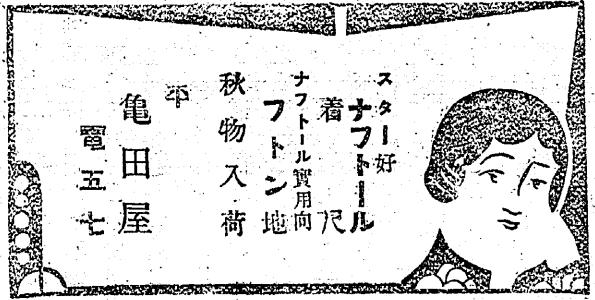 スター好
ナフトール
着尺
ナフトール實用向
フトン地
秋物入荷
平
亀田屋
電五七